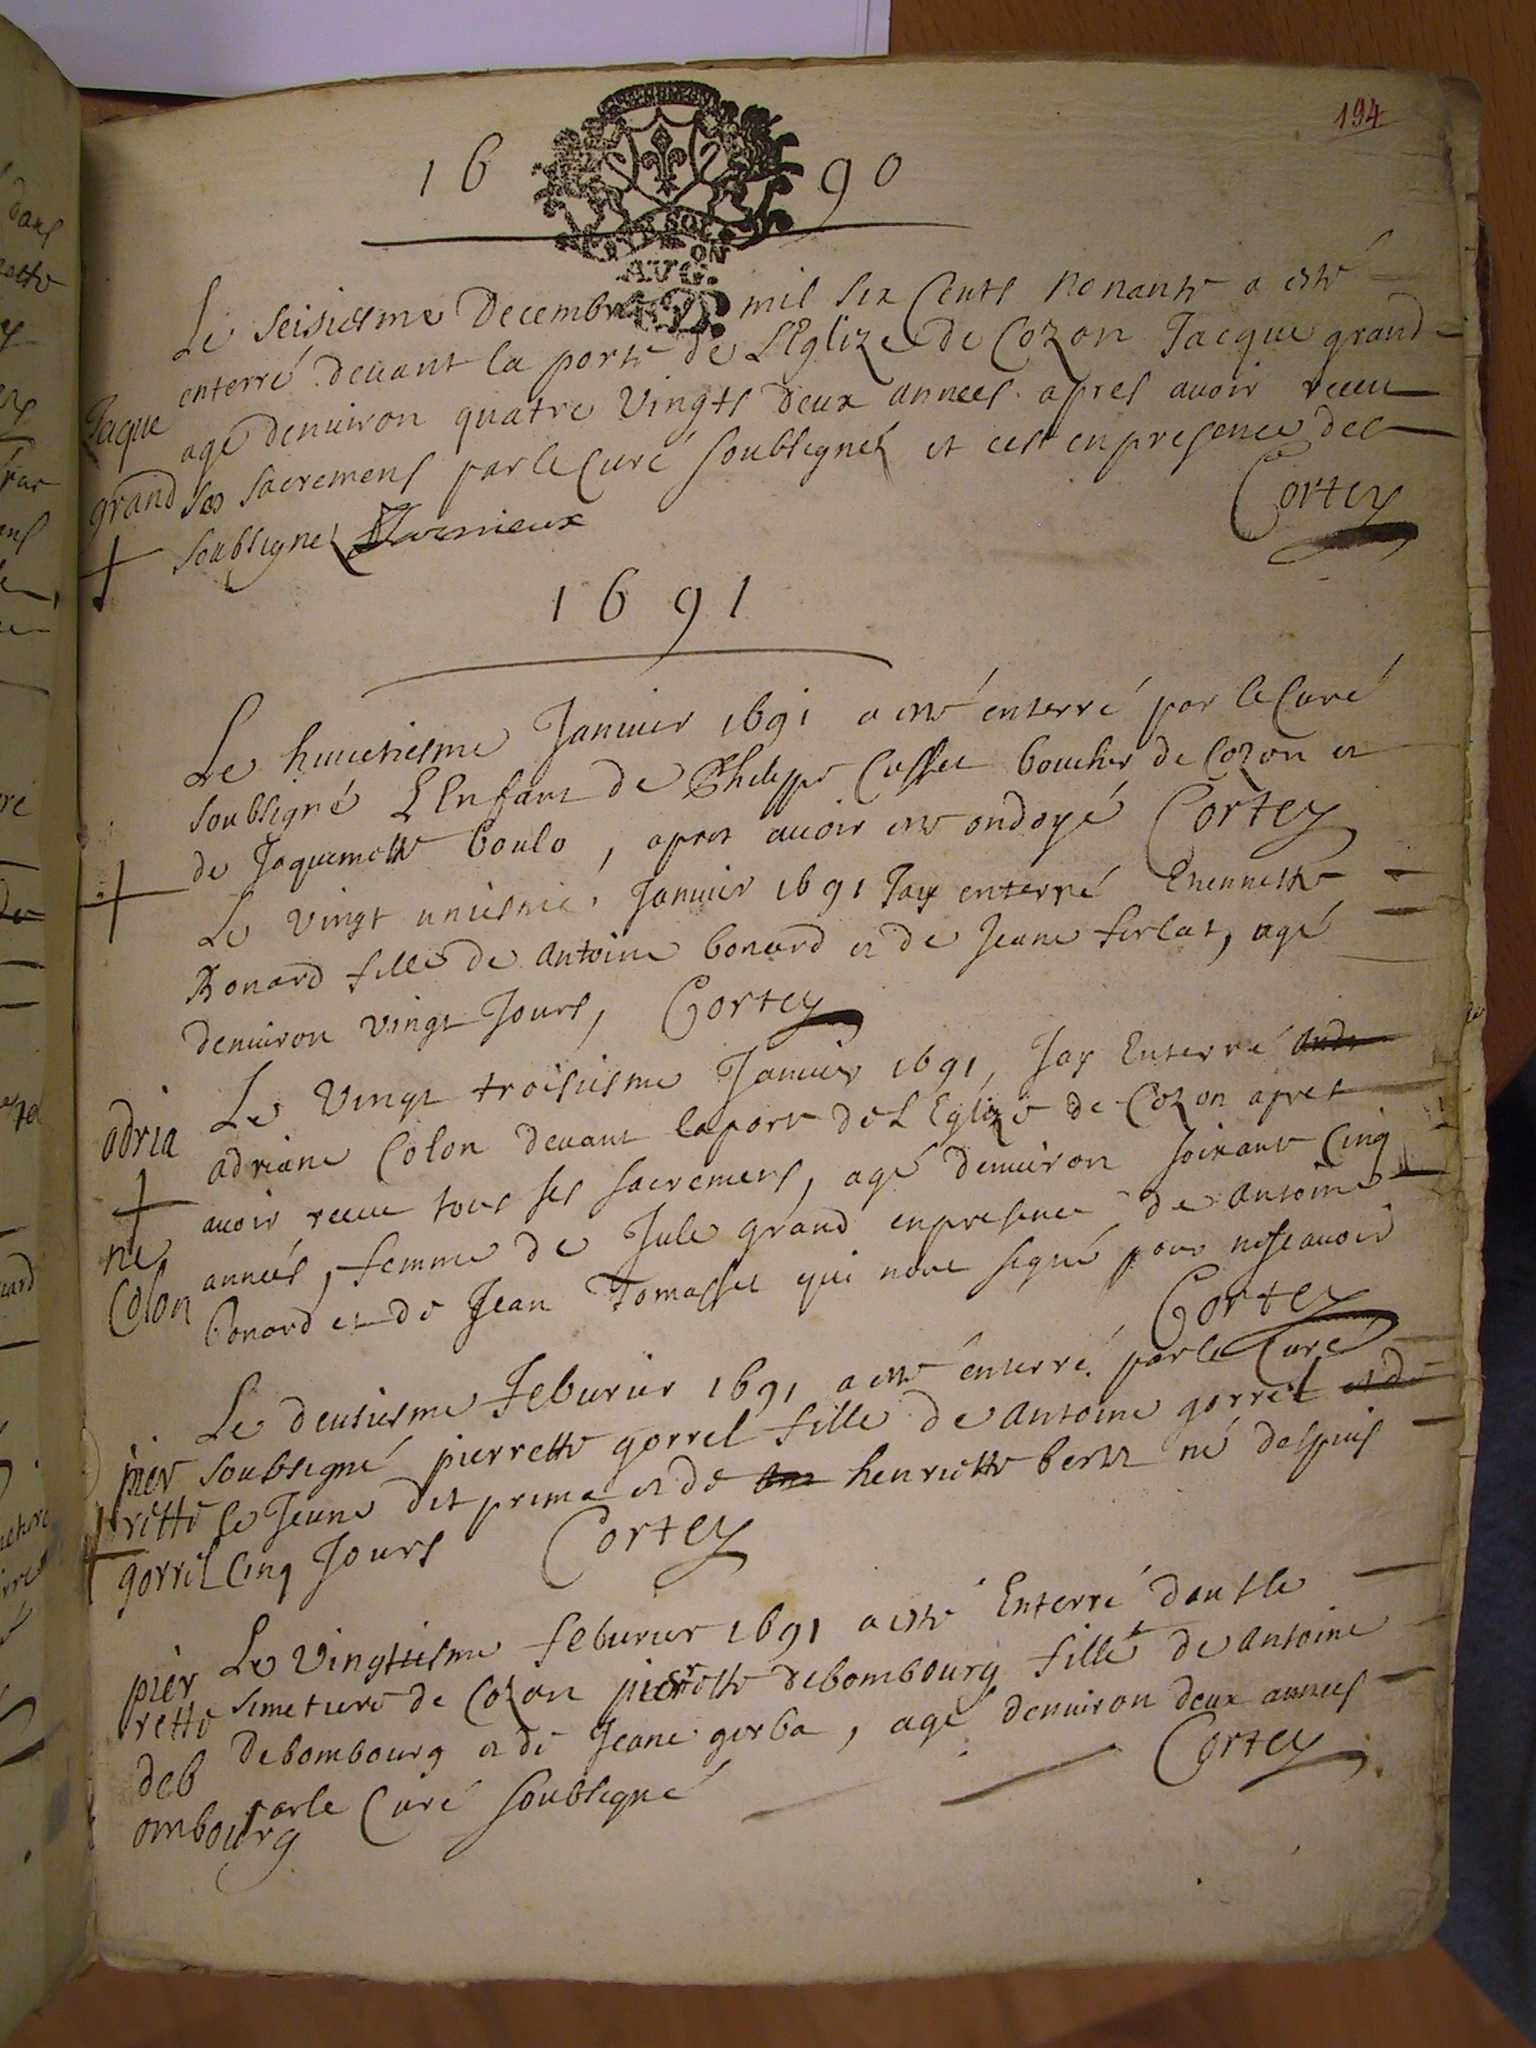 194
16 90
AUG. ON
Le seisiesme Decembre mil six Cents nonante a esté
enterré devant la porte de L'Eglize de Cozon Jacque grand
agé denuiron quatre Vingts deux annees apres auoir receu
Jaque
grand
ses sacremens par le Curé soubsigné et cest en presence des
soubsignez Cortey
1691
Le huictiesme Januier 1691 a esté enterré par le Curé
soubsigné L'Enfant de Philippe Cusset boucher de Cozon et
de Jaquemette boulo, apres auoir esté ondoyé Cortey
Le vingt uniesme Januier 1691 Jay enterré Etiennette
Bonard fille de Antoine bonard et de Jeane ferlat, agé
denuiron vingt Jours, Cortey
Le Vingt troisiesme Januier 1691, Jay Enterré
adriane Colon deuant la porte de L Eglize de Cozon apres
adria
ne
Colon
auoir receu tous ses sacremens, agé denuiron soixante Cinq
années, femme de Jule grand en presence de Antoine
bonard et de Jean Tomasset qui nont signé pour ne scauoir
Cortey
Le deusiesme Feburier 1691 a esté enterré par le Curé
soubsigné pierrette gorrel fille de Antoine gorrel et de
pier
rette
gorrel
le Jeune dit prima et de henriette bertet né despuis
Cinq Jours Cortey
Le Vingtiesme feburier 1691 a esté Enterré dans le
simetiere de Cozon pierrette debombourg fille de Antoine
pier
rette
deb
ombourg
Debombourg et de Jeane gerba, agé denuiron deux annees
par le Curé soubsigné Cortey